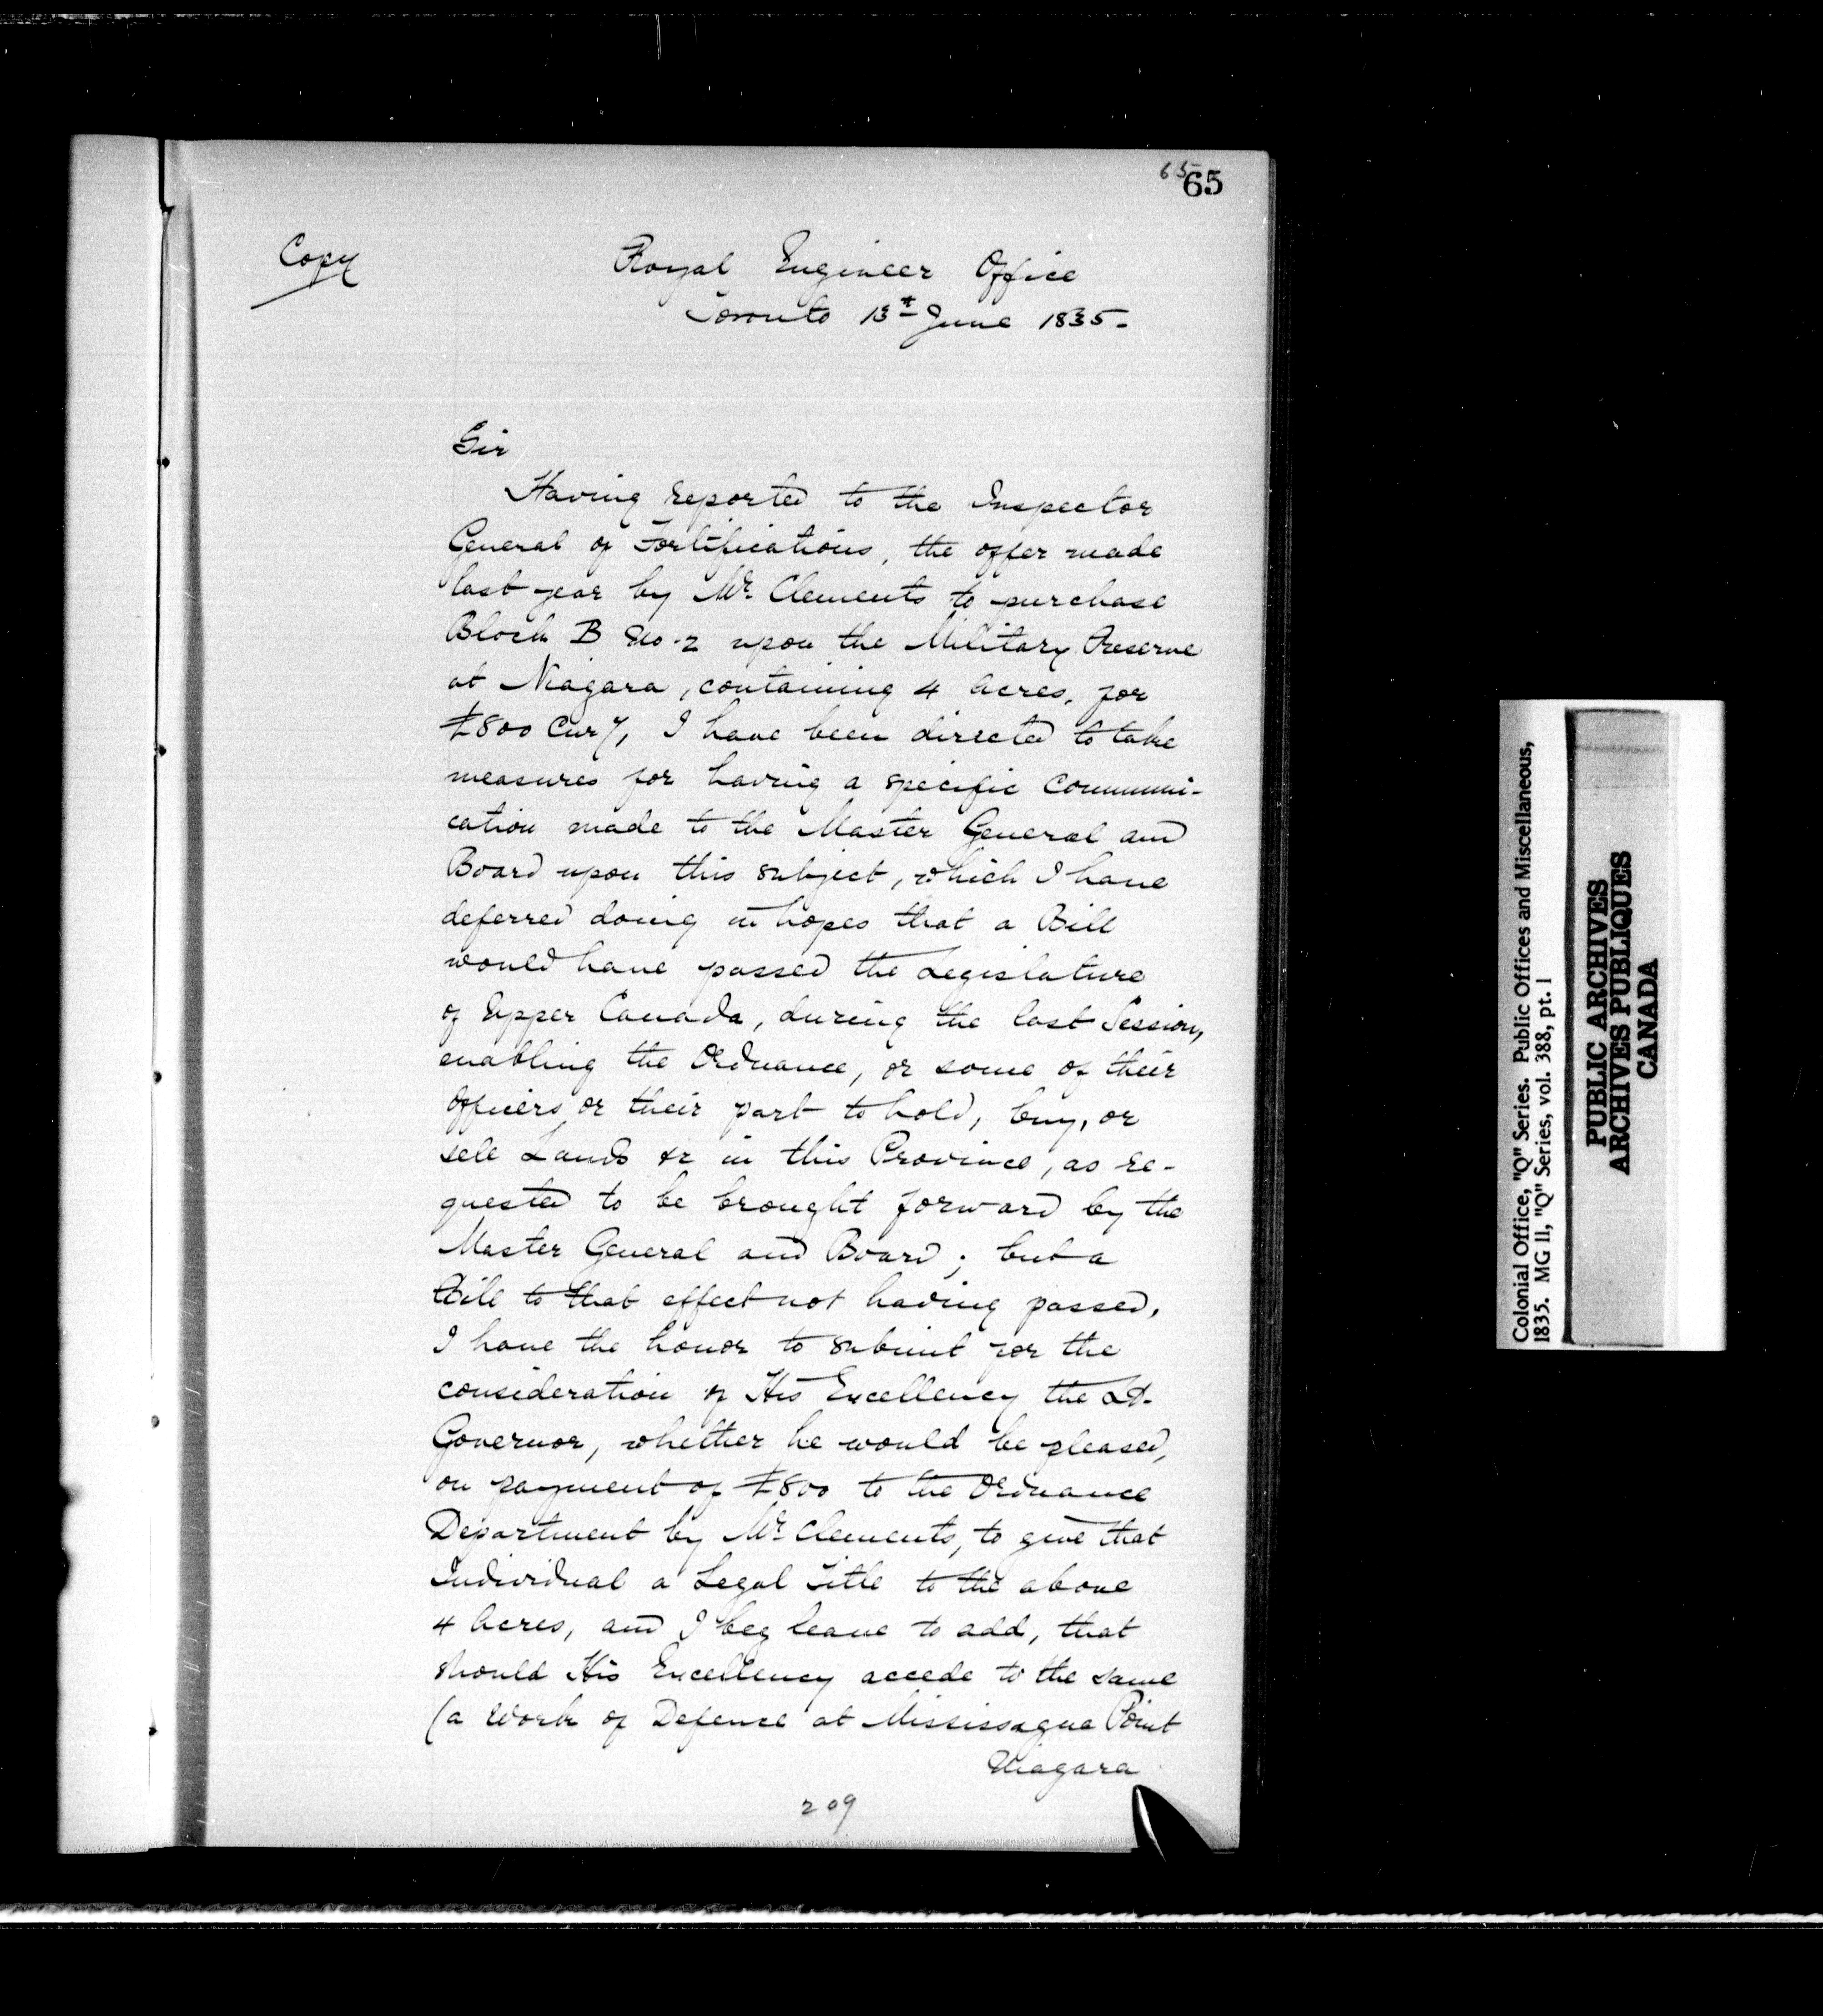 65 65
Copy
Royal Engineer Office
Toronto 13th June 1835-
Sir
Having reported to the Inspector
General of Fortifications, the offer made
last year by Mr. Clements to purchase
Block B No. 2 upon the Military Reserve
at Niagara, containing 4 Acres, for
£800 Cury, I have been directed to take
measures for having a specific Communi-
cation made to the Master General and
Board upon this subject, which I have
deferred doing in hopes that a Bill
would have passed the Legislature
of Upper Canada, during the last Session,
enabling the Ordnance, or some of their
Officers or their part to hold, buy, or
sell Lands &c in this Province, as re-
quested to be brought forward by the
Master General and Board; but a
Bill to that effect not having passed,
I have the honor to submit for the
consideration of His Excellency the Lt.
Governor, whether he would be pleased,
on payment of £800 to the Ordnance
Department by Mr. Clements, to give that
Individual a Legal Title to the above
4 Acres, and I beg leave to add, that
should His Excellency accede to the same
(a Work of Defence at Mississagua Point
Niagara
209
Colonial Office, "Q" Series. Public Offices and Miscellaneous,
1835. MG 11, "Q" Series, vol. 388, pt. 1
PUBLIC ARCHIVES
ARCHIVES PUBLIQUES
CANADA